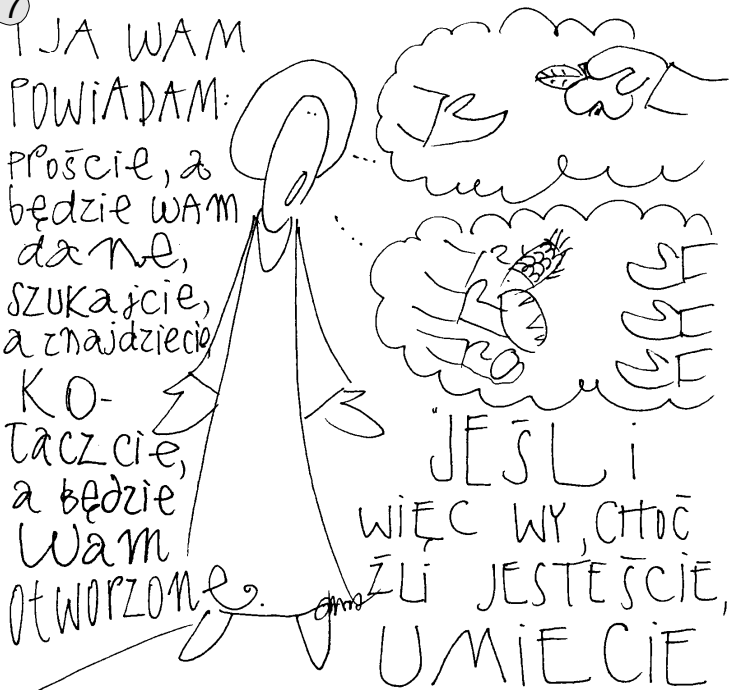 7
I JA WAM
POWIADAM:
PROŚCIE, a
będzie WAM
dane,
SZUKAjCIE,
a znajdziecie,
KO-
ŁACZCIE,
a BĘDZIE
Wam
otworzone.
JEŚLI
WIĘC WY, CHOĆ
ŹLI JESTEŚCIE,
UMIECIE